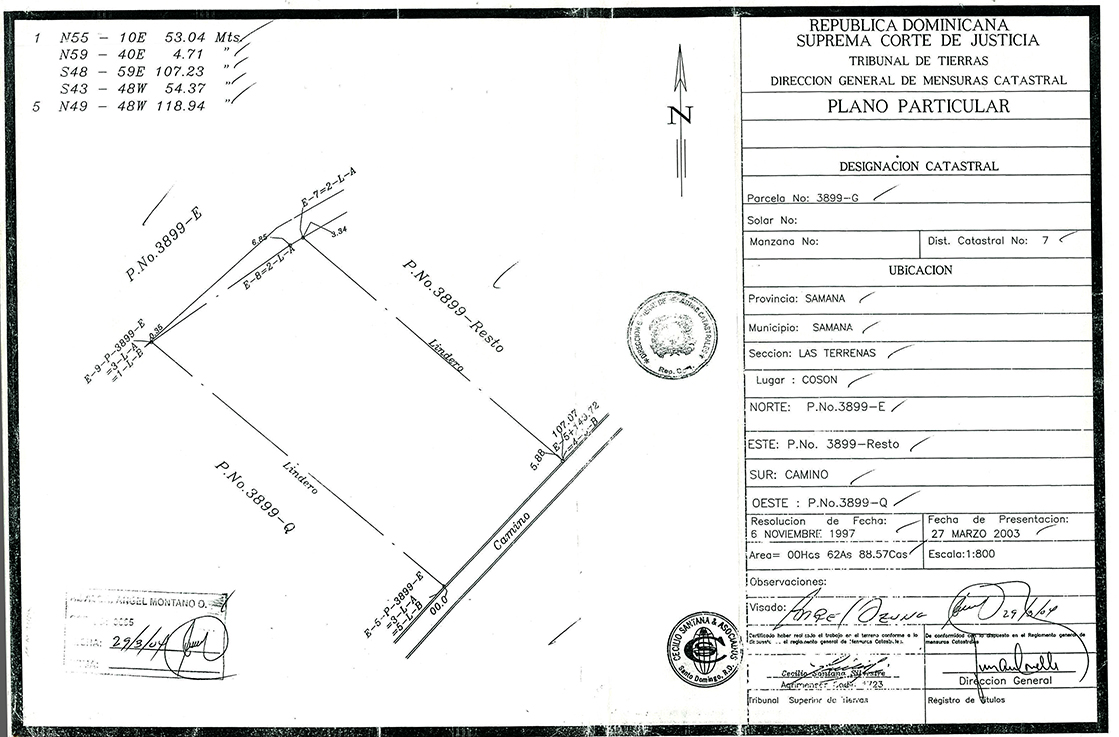 1 N55 - 10E 53.04 Mts.
N59 - 40E 4.71 "
S48 - 59E 107.23 "
S43 - 48W 54.37 "
5 N49 - 48W 118.94 "
N
P.No.3899-E
E-7=2-L-A
6.85
3.34
E-8=2-L-A
P.No.3899-Resto
Lindero
E-9-P-3899-E
=3-L-A
=1-L-B
0.35
Lindero
P.No.3899-Q
107.07
5.88
Camino
E-5-P-3899-E
=3-L-A
=5-L-B
00.0
ANGEL MONTANO O.
29/3/04
Reg. C.
CECILIO SANTANA & ASOCIADOS
Santo Domingo, R.D.
REPUBLICA DOMINICANA
SUPREMA CORTE DE JUSTICIA
TRIBUNAL DE TIERRAS
DIRECCION GENERAL DE MENSURAS CATASTRAL
PLANO PARTICULAR
DESIGNACION CATASTRAL
Parcela No: 3899-G
Solar No:
Manzana No: Dist. Catastral No: 7
UBICACION
Provincia: SAMANA
Municipio: SAMANA
Seccion: LAS TERRENAS
Lugar : COSON
NORTE: P.No.3899-E
ESTE: P.No. 3899-Resto
SUR: CAMINO
OESTE : P.No.3899-Q
Resolucion de Fecha: Fecha de Presentacion:
6 NOVIEMBRE 1997 27 MARZO 2003
Area= 00Has 62As 88.57Cas Escala:1:800
Observaciones:
Visado: 29/3/04
Certificado haber realizado el trabajo en el terreno conforme a la
el reglamento general de Mensuras
De conformidad con lo dispuesto en el Reglamento general de
mensuras Catastrales
Cecilio Santana Silvestre
Direccion General
Tribunal Superior de Tierras Registro de Titulos